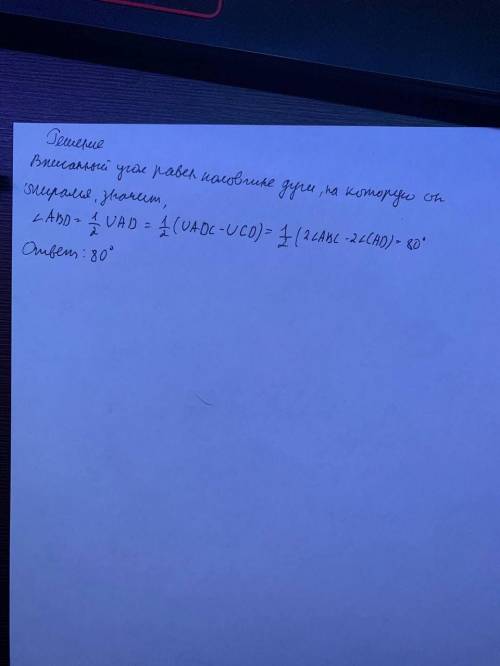 Решение
Вписанный угол равен половине дуги, на которую он
опирался, значит,
∠ABD = 1/2 ∪AD = 1/2 (∪ADC - ∪CD) = 1/2 (2∠ABC - 2∠CAD) = 80°
Ответ: 80°